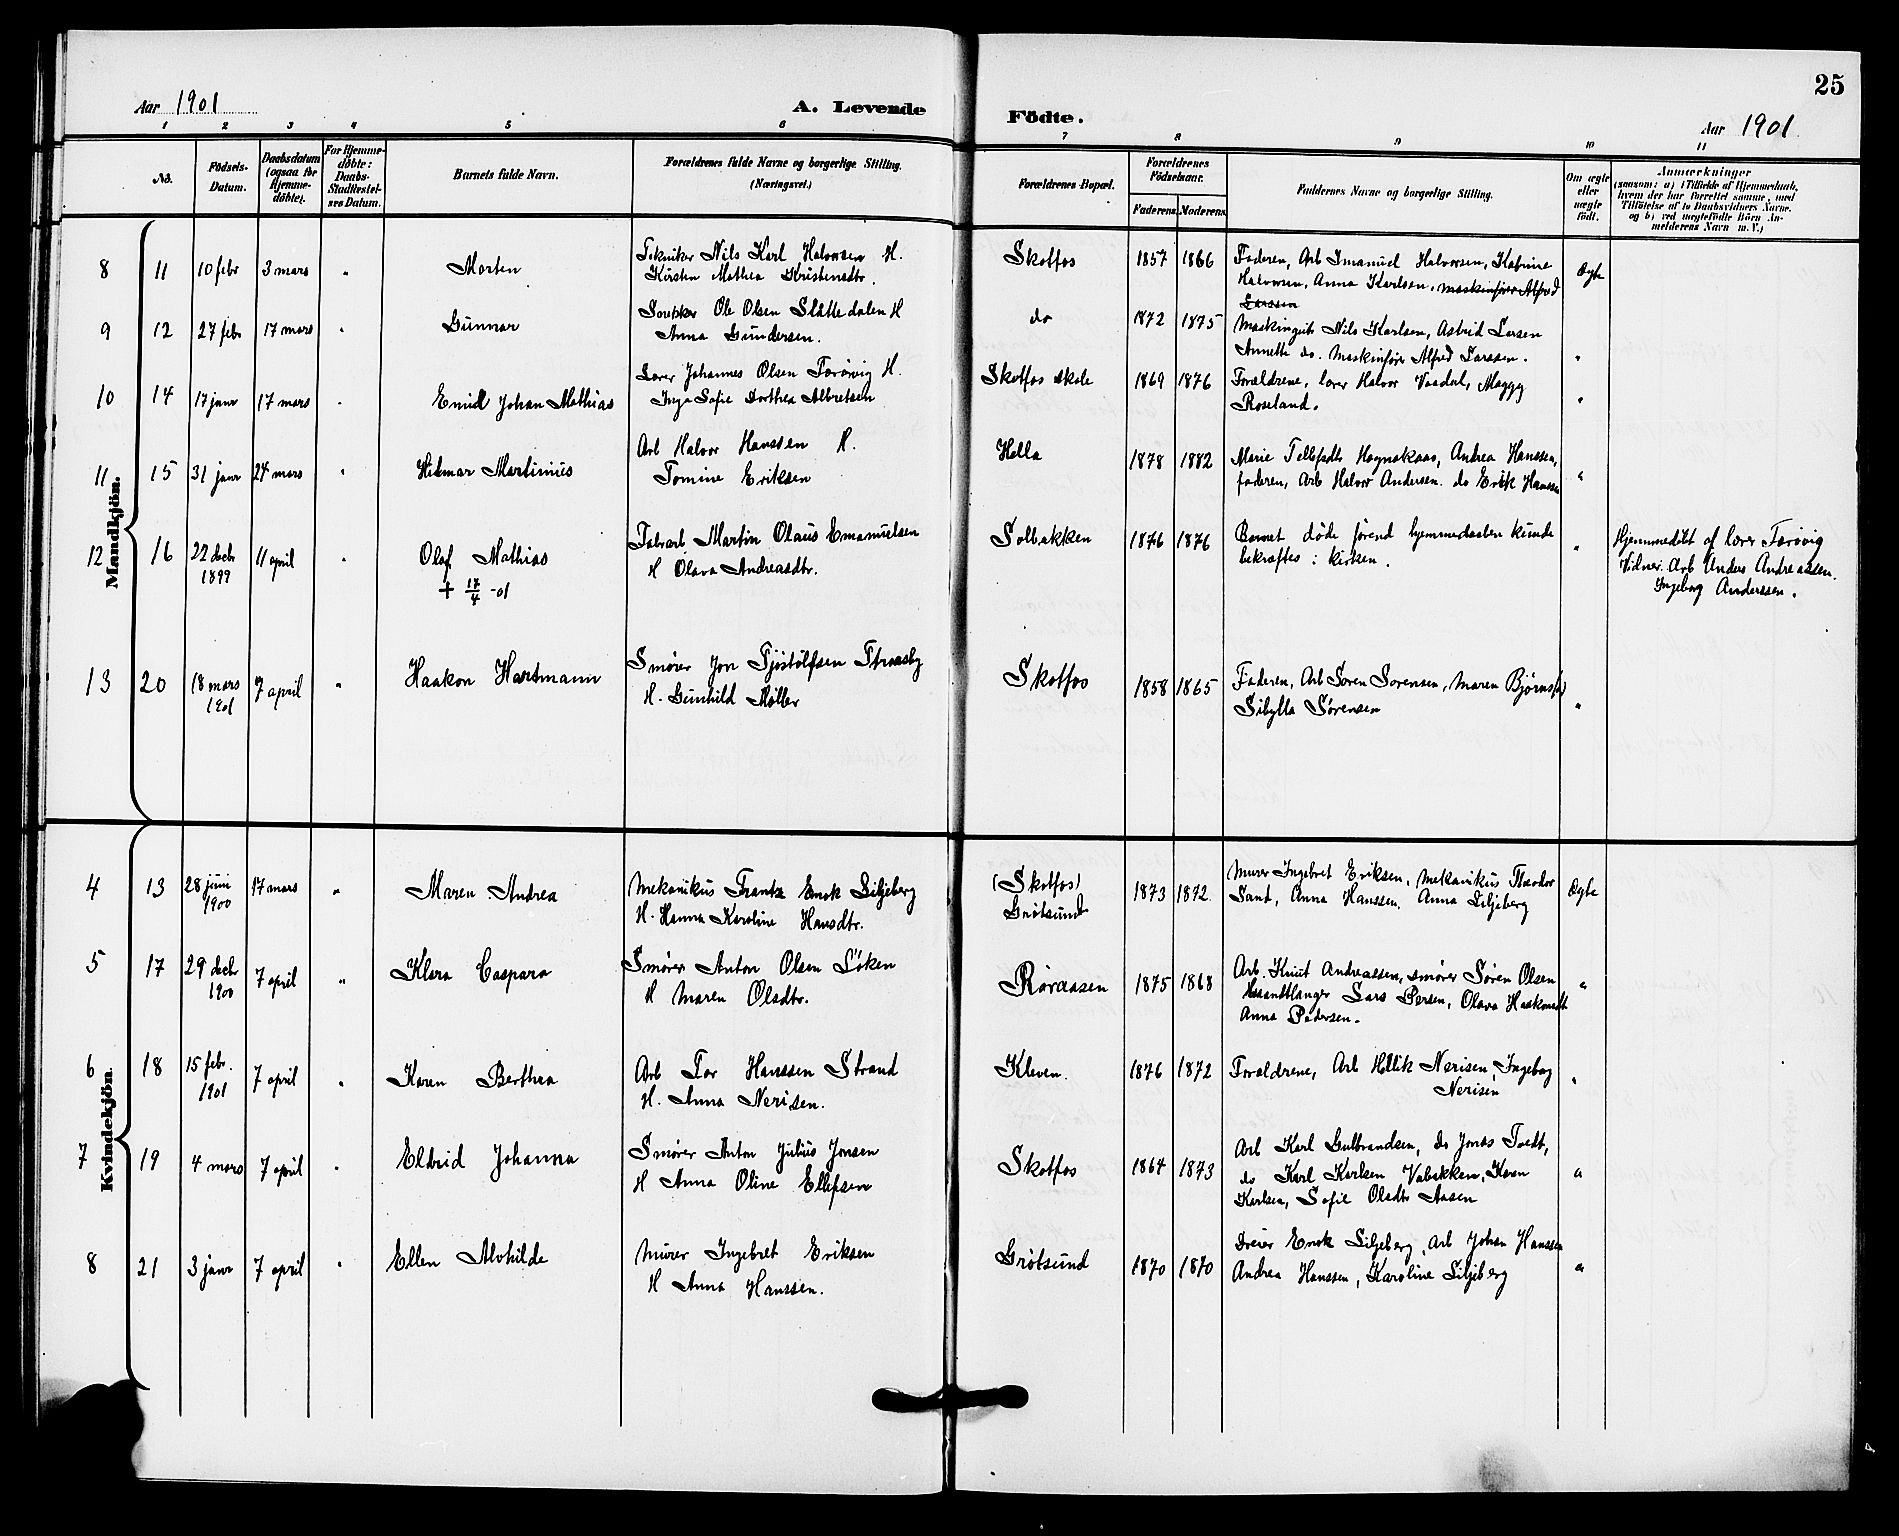 25
Aar 1901
A. Levende
Födte.
Aar 1901.
1 2 3 4 5 6 7 8 9 10 11
No.
Födsels-
Datum.
Daabsdatum
(ogsaa for
Hjemme-
döbte).
For Hjemme-
döbte:
Daabs-
Stadfæstel-
ses Datum.
Barnets fulde Navn.
Forældrenes fulde Navne og borgerlige Stilling.
(Næringsvei.)
Forældrenes Bopæl.
Forældrenes
Födselsaar.
Faderens. Moderens.
Faddernes Navne og borgerlige Stilling.
Om ægte
eller
uægte
födt.
Anmærkninger
(saasom: a) i Tilfælde af Hjemmedaab,
hvem der har forrettet samme, med
Tilföielse af to Daabsvidners Navne.
og b) ved uægtefödte Börn An-
melderens Navn m. V.)
Mandkjön.
8 11 10 febr 3 mars " Morten
Tekniker Nils Karl Halvorsen H.
Kirsten Mathea Kristensdtr.
Skotfos 1857 1866
Faderen, Arb Imanuel Halvorsen, Katrine
Halvorsen, Anna Karlsen, maskinfører Alfred
Larssen
Ægte
9 12 27 febr 17 mars " Gunnar
Ole Olsen Slaattedalen H
Anna Gundersen.
do 1872 1875
Nils Karlsen, Astrid Larsen
Annette do. Maskinfører Alfred Larssen.
"
10 14 17 janr 17 mars " Emil Johan Mathias
Lærer Johannes Olsen Farøvig H.
Inga Sofie Dorthea Albretsen
Skotfos skole 1869 1876
Forældrene, lærer Halvor Vaadal, Maggy
Roseland.
"
11 15 31 janr 24 mars " Hilmar Martinius
Arb Halvor Hanssen H.
Tomine Eriksen
Holla 1878 1882
Marie Tellefsdtr Høgnakaas, Andrea Hanssen,
faderen, Arb Halvor Andersen. do Erik Hanssen
"
12 16 22 decbr
1899 11 april " Olaf Mathias
+ 17/4 -01
Fabrarb Martin Olaus Emanuelsen
H Olava Andreasdtr.
Solbakken 1876 1876
Barnet døde førend hjemmedaaben kunde
bekræftes i kirken.
"
Hjemmedøbt af lærer Farøvig
Vidner: Arb Anders Andreassen.
Ingeborg Anderssen.
13 20 18 mars
1901 7 april " Haakon Hartmann
Smører Jon Tjøstolfsen Straasby
H. Gunhild Møller
Skotfos 1858 1865
Faderen, Arb Søren Sørensen, Maren
Sibylla Sørensen
"
Kvindekjön.
4 13 28 juni
1900 17 mars " Maren Andrea
Mekanikus Frantz Enok Liljeberg
H. Hanna Karoline Hansdtr.
(Skotfos)
Grøtsund 1873 1872.
Murer Ingebret Eriksen, mekanikus Theodor
Sand, Anna Hanssen. Anna Liljeberg
Ægte
5 17 29 decbr
1900 7 april " Klara Caspara
Smører Anton Olsen Løken
H Maren Olsdtr.
Røraasen 1875 1868
Arb. Knut Andreassen, smører Søren Olsen
Haandtlanger Lars Persen, Olava Haakonsdtr
Anna Pedersen.
"
6 18 15 febr.
1901 7 april " Karen Berthea
Arb Tor Hanssen Strand
H. Anna Nerisen.
Kleven. 1876 1872
Forældrene, Arb Hellik Nerisen, Ingeborg
Nerisen
"
7 19 4 mars 7 april " Eldrid Johanna
Smører Anton Julius Jonsen
H Anna Oline Ellefsen
Skotfos 1864 1873
Arb Karl Gulbrandsen, do Jonas Tvedt,
do Karl Karlsen Vabakken, Karen
Karlsen, Sofie Olsdtr Aasen
"
8 21 3 janr 7 april " Ellen Alvhilde
Murer Ingebret Eriksen
H Anna Hanssen.
Grøtsund 1870 1870
Dreier Enok Liljeberg, Arb Johan Hanssen
Andrea Hanssen, Karoline Liljeberg
"